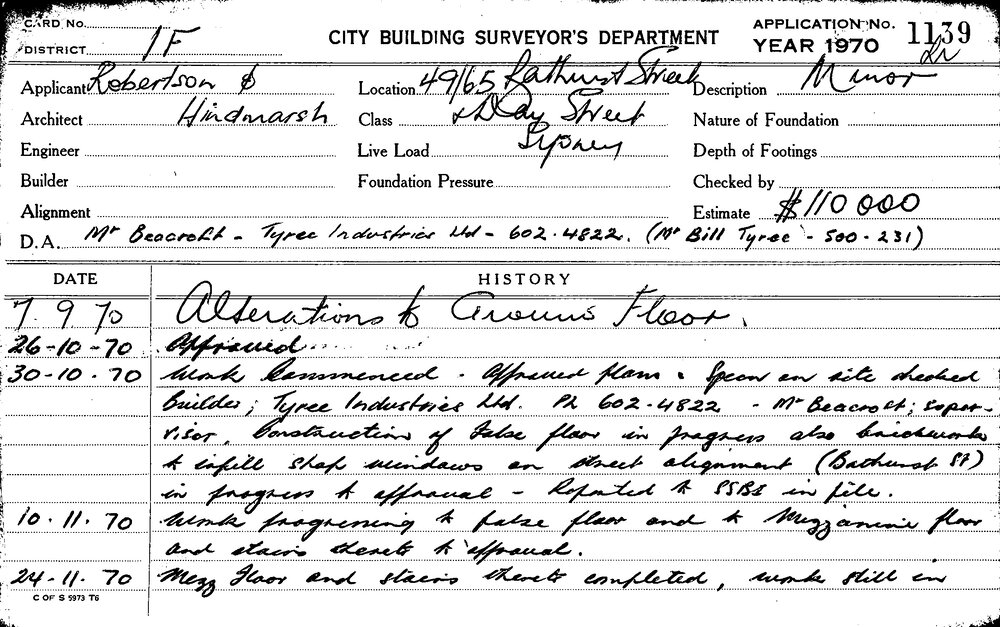 CARD No.
DISTRICT 1F
CITY BUILDING SURVEYOR'S DEPARTMENT
APPLICATION No. 1139
YEAR 1970
Applicant Robertson &
Location 49/65 Bathurst Street
Description Minor
Architect Hindmarsh
Class & Day Street
Nature of Foundation
Engineer
Live Load Sydney
Depth of Footings
Builder
Foundation Pressure
Checked by
Alignment
Estimate $110 000
D.A. Mr Beacroft - Tyree Industries Ltd - 602.4822. (Mr Bill Tyree - 500-231)
DATE HISTORY
7 9 70 Alterations to Ground Floor.
26-10-70 Approved
30-10-70 Work Commenced - Approved plans & Specn on site checked
Builder; Tyree Industries Ltd. Ph 602-4822 - Mr Beacroft; super-
visor, Construction of false floor in progress also brickwork
to infill shop windows on street alignment (Bathurst St)
in progress to approval - Reported to SSBS in file.
10.11.70 Work progressing to false floor and to Mezzanine floor
and stairs thereto to approval.
24-11-70 Mezz Floor and stairs thereto completed, work still in
C OF S 5973 T6